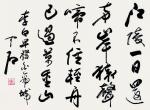 江陵一日還
兩岸猿聲
啼不住輕舟
已過萬重山
李白早發白帝城